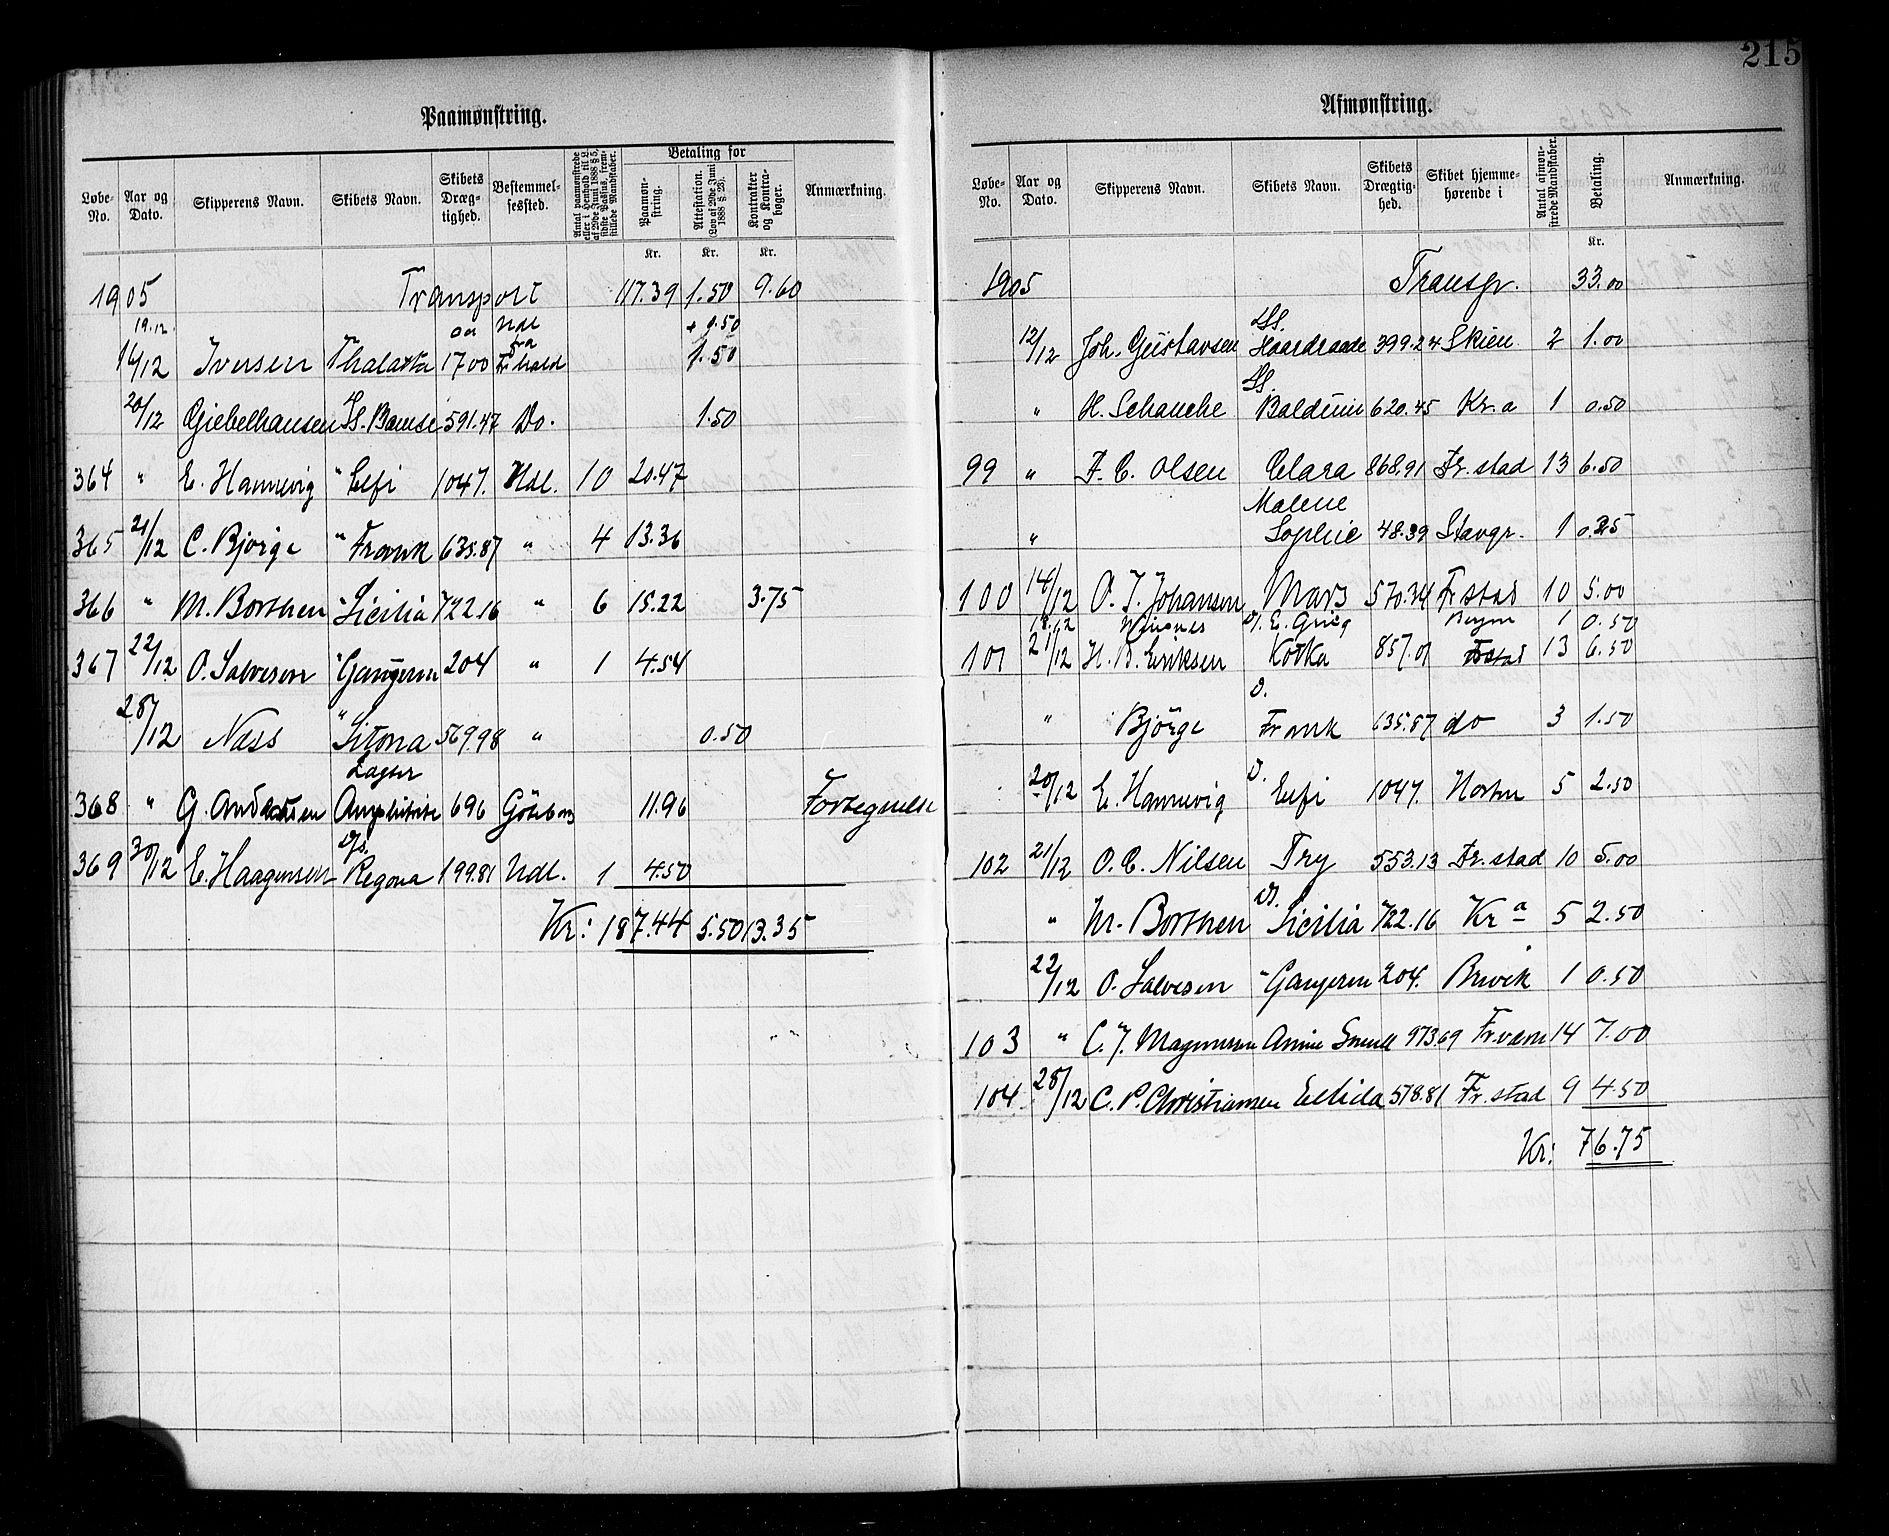 215
Paamønstring.
Løbe-No. Aar og Dato. Skipperens Navn. Skibets Navn. Skibets Dræg-tighed. Bestemmel-sessted. Antal paamønstrede eller i Henhold til L. af 29de Juni 1888 § 5, sidste Passus, frem-stillede Mandskaber. Betaling for Paamøn-string. Attestation. (Lov af 29de Juni 1888 § 23). Kontrakter og Kontra-bøger. Anmærkning.
Kr. Kr. Kr.
1905 Transport 117.39 1.50 9.60
19.12. Udl + 0.50
16/12 Iversen Thalatta 1700 fra Fr.hald 1.50
20/12 Giebelhausen SS. Bamse 591.47 Do. 1.50
364 " E. Hannevig " Eefi 1047. Udl. 10 20.47
365 21/12 C. Bjørge " Frank 635.87 " 4 13.36
366 " M. Borthen " Sicilia 722.16 " 6 15.22 3.75
367 22/12 O. Salvesen " Gangeren 204 " 1 4.54
28/12 Næss " Sitona 569.98 " 0.50
Lagter
368 " G. Andersen Amphitrite 696 Göteborg 11.96 Fortegnelse
369 30/12 E. Haagensen D/s. Regona 199.81 Udl. 1 4.50
Kr: 187.44 5.50 13.35
Afmønstring.
Løbe-No. Aar og Dato. Skipperens Navn. Skibets Navn. Skibets Drægtig-hed. Skibet hjemme-hørende i Antal afmøn-strede Mandskaber. Betaling. Anmærkning.
Kr.
1905 Transp. 33.00
12/12 Joh. Gustavsen SS. Haardraade 399.24 Skien 2 1.00
" H. Schanche SS. Balduin 620.45 Kr.a 1 0.50
99 " F. C. Olsen Clara 868.91 Fr.stad 13 6.50
" Malene Sophie 48.39 Stavgr. 1 0.25
100 14/12 O. J. Johansen Mars 570.34 Frstad 10 5.00
18.12 E. Grieg 1 0.50
101 21/12 H. B. Eriksen Kotka 857.01 Frstad 13 6.50
" Bjørge D. Frank 635.87 do 3 1.50
20/12 E. Hannevig D. Eefi 1047. Horten 5 2.50
102 21/12 O. C. Nilsen Try 553.13 Fr.stad 10 5.00
" M. Borthen D. Sicilia 722.16 Kr a 5 2.50
22/12 O. Salvesen " Gangeren 204. Brevik 1 0.50
103 " C. J. Magnussen Annie Smull 973.69 Fr.værn 14 7.00
104 28/12 C. P. Christiansen Ellida 518.81 Fr.stad 9 4.50
Kr: 76.75